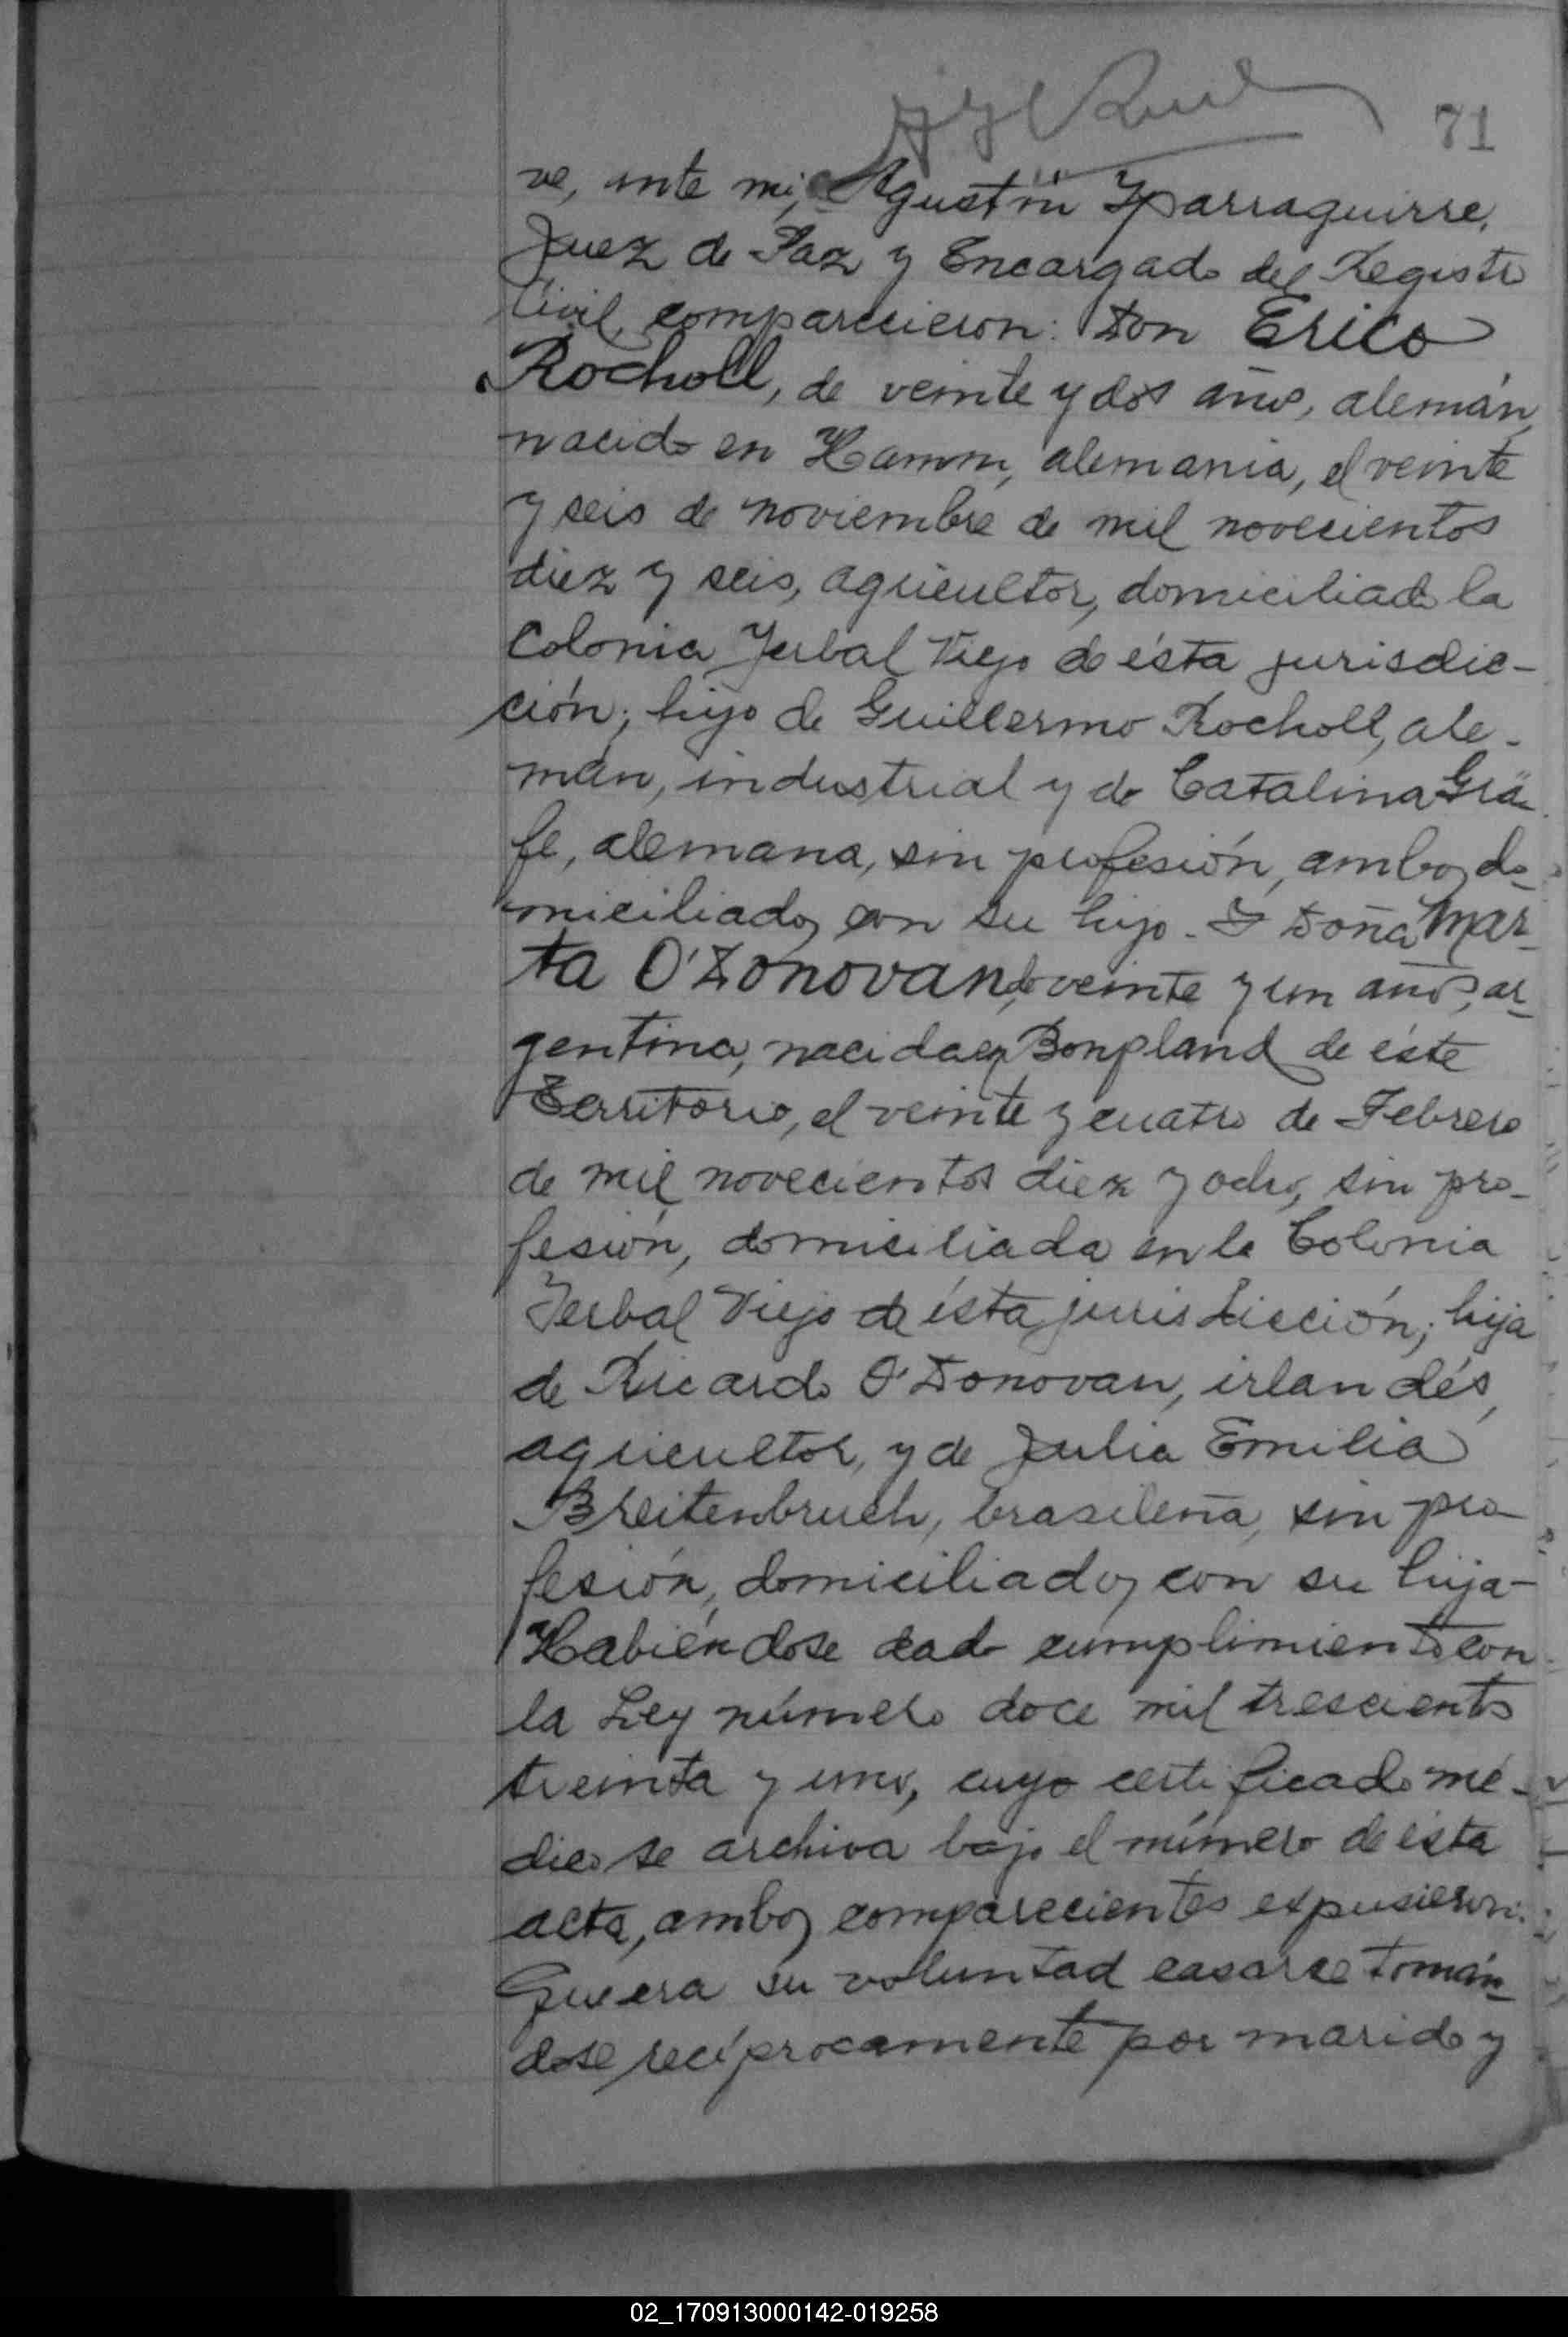 71
ve, ante mi, Agustin Yparraguirre,
Juez de Paz y Encargado del Registro
Civil, comparecieron: Don Erico
Rocholl, de veinte y dos años, alemán,
nacido en Hamm, alemania, el veinte
y seis de noviembre de mil novecientos
diez y seis, agricultor, domiciliado la
Colonia Yerbal Viejo de ésta jurisdic-
ción; hijo de Guillermo Rocholl, ale-
mán, industrial y de Catalina Grä-
fe, alemana, sin profesión, ambos do-
miciliados con su hijo. Y Doña Mar-
ta O'Donovan, de veinte y un años, ar-
gentina, nacida en Bonpland de éste
Territorio, el veinte y cuatro de Febrero
de mil novecientos diez y ocho, sin pro-
fesión, domiciliada en la Colonia
Yerbal Viejo de ésta jurisdicción; hija
de Ricardo O'Donovan, irlandés,
agricultor, y de Julia Emilia
Breitenbruch, brasileña, sin pro-
fesión, domiciliados con su hija-
Habiéndose dado cumplimiento con
la Ley número doce mil trescientos
treinta y uno, cuyo certificado mé-
dico se archiva bajo el número de ésta
acta, ambos comparecientes expusieron:
Que era su voluntad casarse tomán-
dose recíprocamente por marido y
02_170913000142-019258